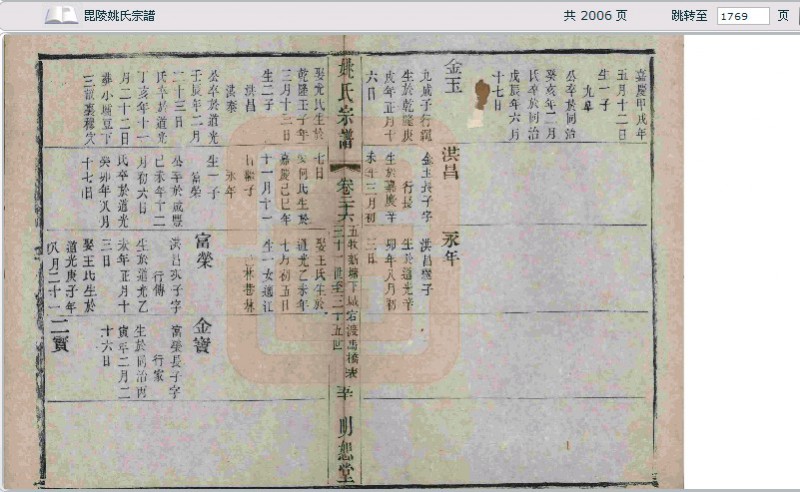 毘陵姚氏宗譜
共 2006 页
跳转至 1769 页
嘉慶甲戌年
五月十二日
生一子
九皋
公卒於同治
癸亥年二月
氏卒於同治
戊辰年六月
十七日
金玉
九成子行
生於乾隆庚
戌年正月十
六日
娶 氏生於
乾隆壬子年
三月十三日
生二子
洪昌
洪泰
公卒於道光
壬辰年二月
二十三日
氏卒於道光
丁亥年十一
月二十二日
三
洪昌
金玉長子字
行長
生於嘉慶辛
未年三月初
七日
何氏生於
嘉慶己巳年
十一月十一
子
永年
生一子
富榮
公卒於咸豐
己未年十二
月初六日
氏卒於道光
癸卯年八月
十七日
永年
洪昌 子
生於道光辛
卯年八月初
三日
娶王氏生於
道光乙未年
七月初五日
生一女適江
富榮
洪昌次子字
行傳
生於道光乙
未年正月十
三日
娶王氏生於
道光庚子年
八月二十一
金寶
富榮長子字
行家
生於同治丙
寅年二月二
十六日
二寶
姚氏宗譜
卷二六
三十一世至三十五世
明恕堂